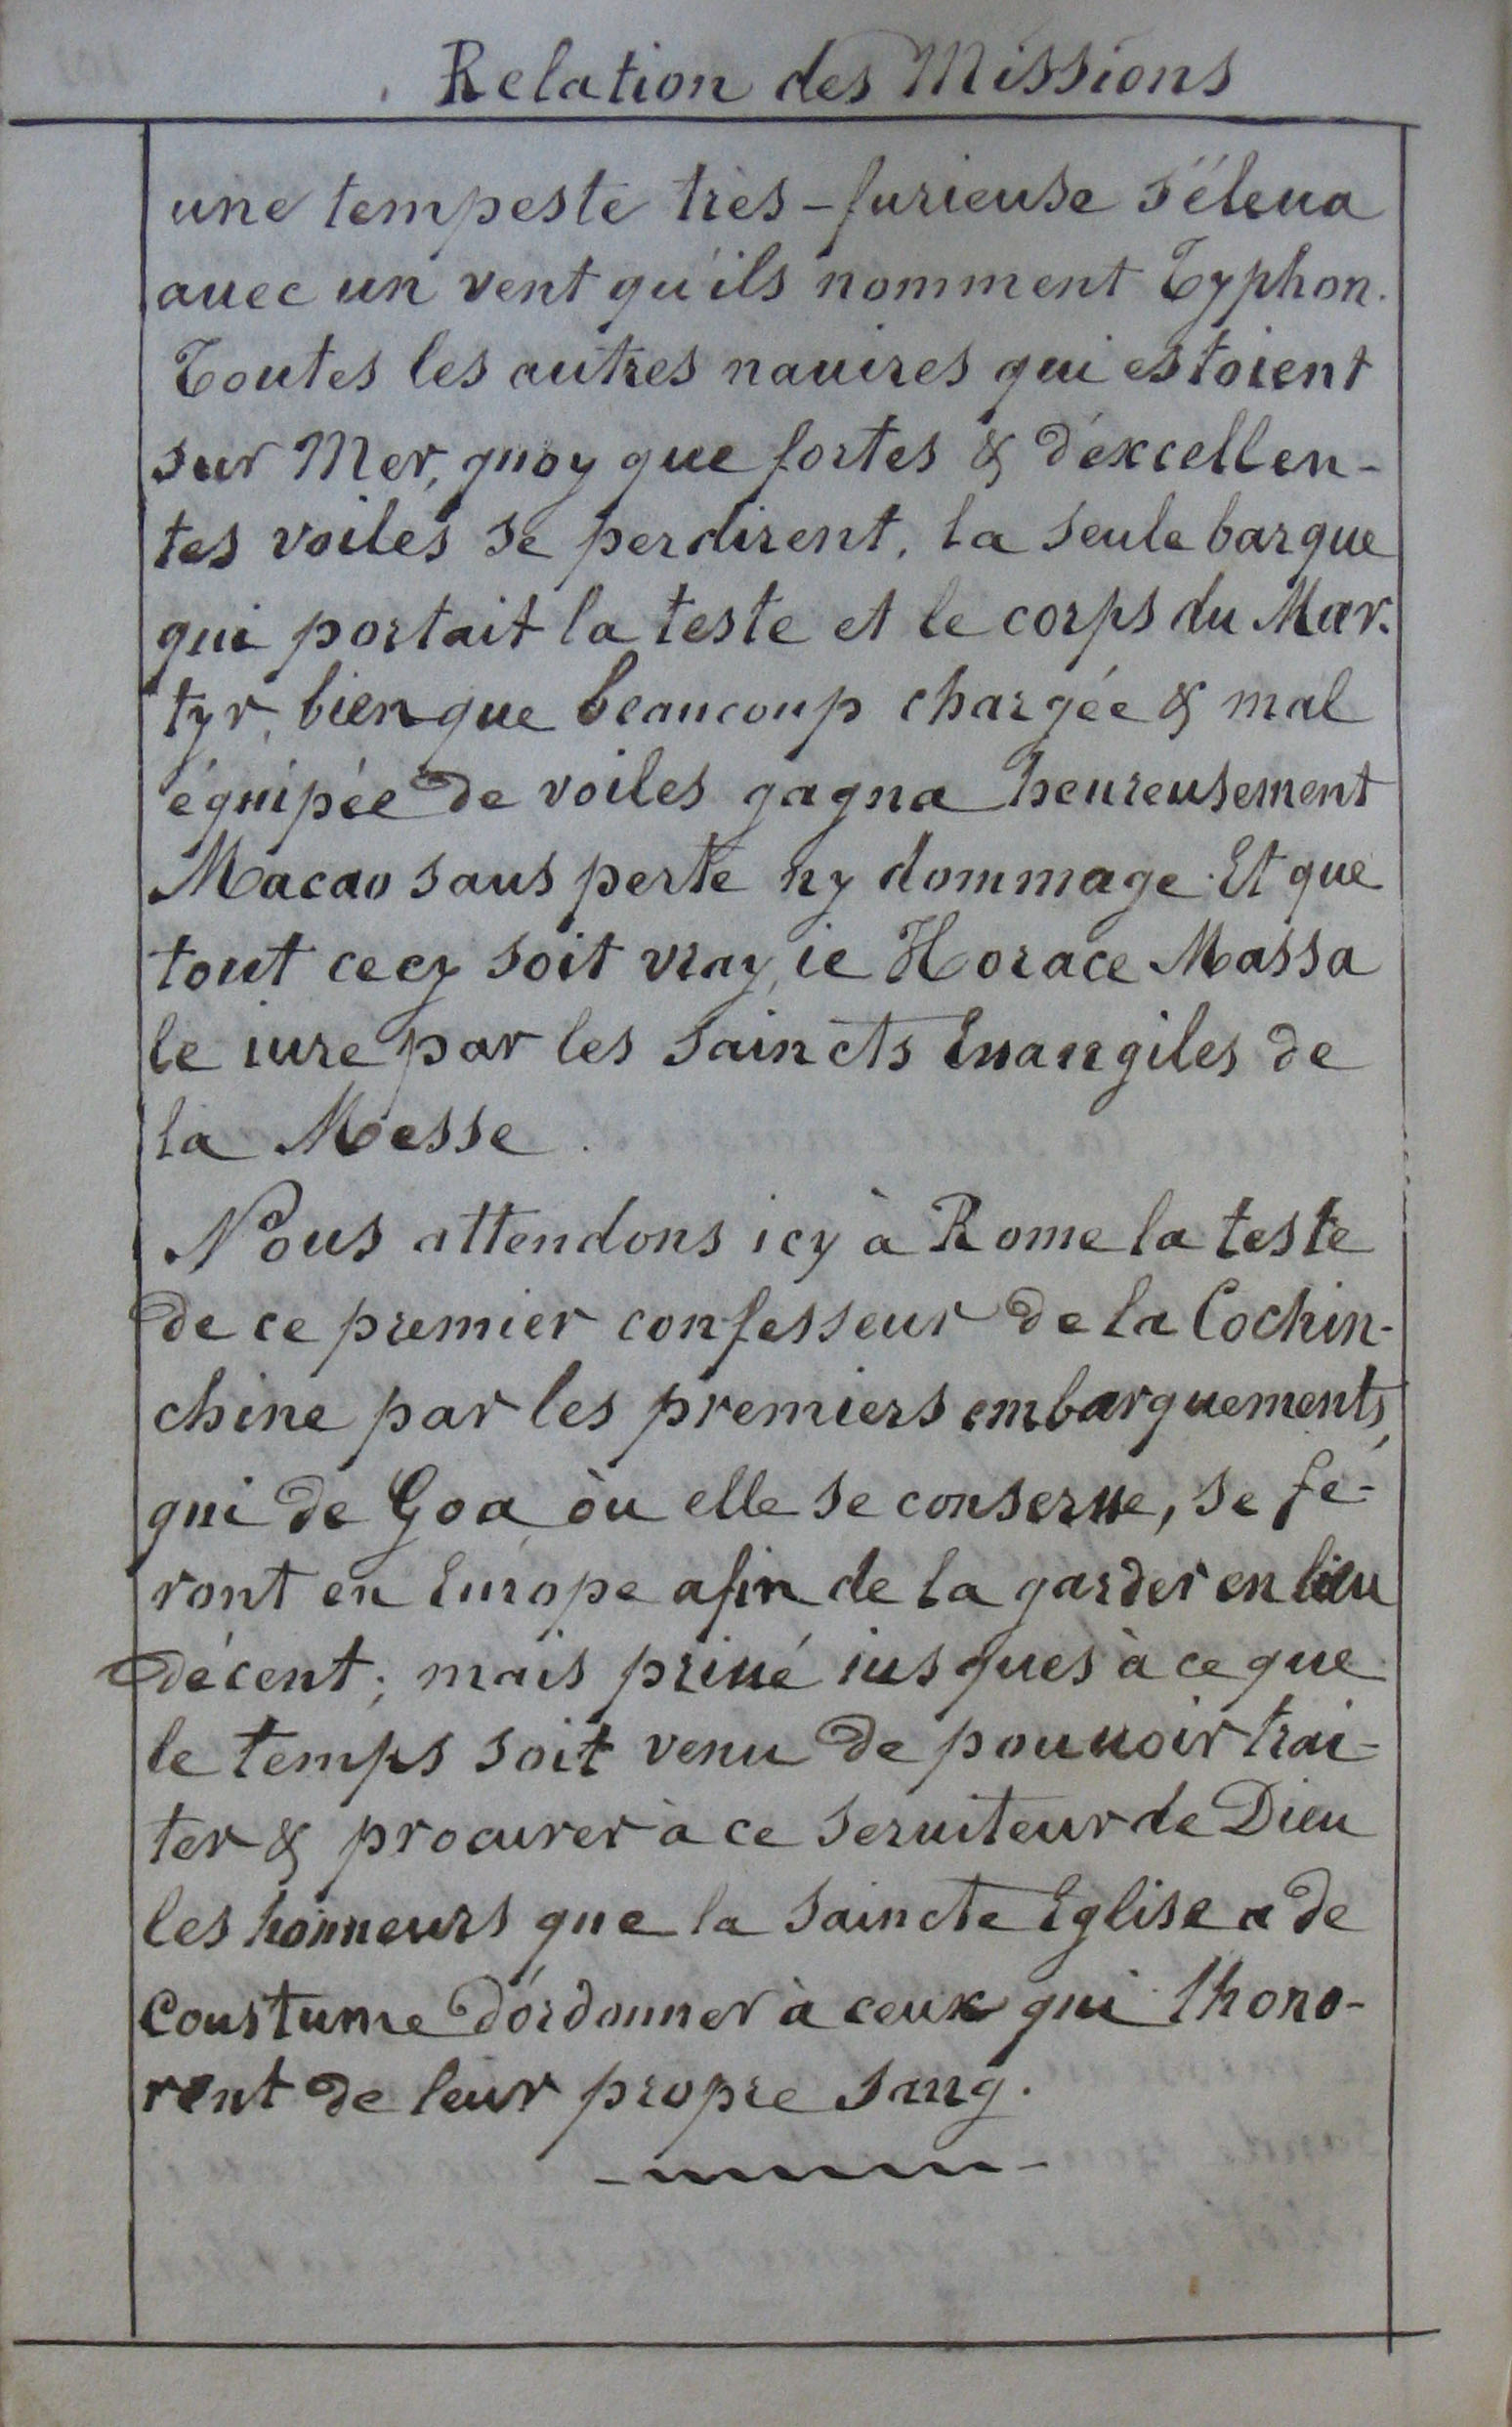 Relation des Missions
une tempeste très-furieuse s'éleua
auec un vent qu'ils nomment Typhon.
Toutes les autres nauires qui estoient
sur Mer, quoy que fortes & d'excellen-
tes voiles se perdirent, la seule barque
qui portait la teste et le corps du Mar-
tyr, bien que beaucoup chargée & mal
équipée de voiles gagna heureusement
Macao sans perte ny dommage. Et que
tout cecy soit vray, ie Horace Massa
le iure par les saincts Euangiles de
la Messe.
Nous attendons icy à Rome la teste
de ce premier confesseur de la Cochin-
chine par les premiers embarquements,
qui de Goa où elle se conserue, se fe-
ront en Europe afin de la garder en lieu
décent; mais priué iusques à ce que
le temps soit venu de pouuoir trai-
ter & procurer à ce seruiteur de Dieu
les honneurs que la saincte Eglise a de
Coustume d'ordonner à ceux qui l'hono-
rent de leur propre sang.